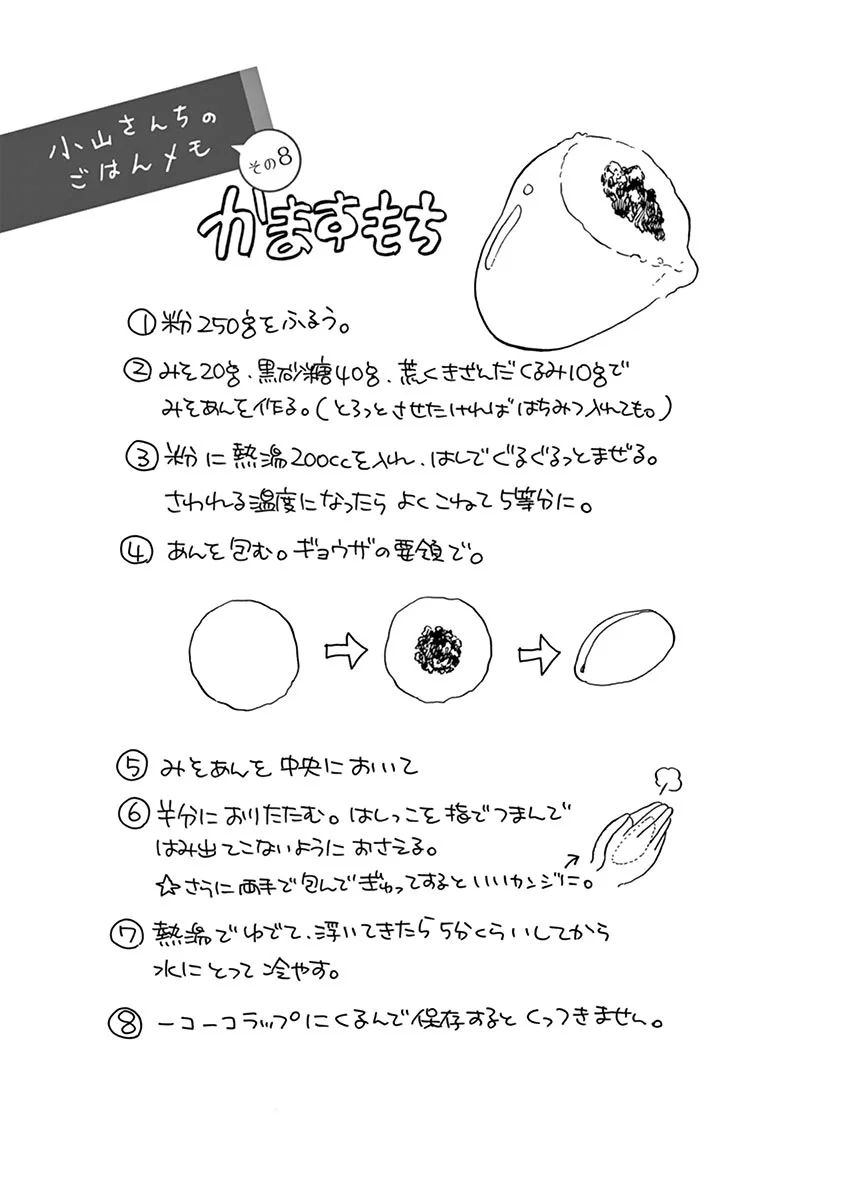 小山さんちの
ごはんメモ
その8
かますもち
①粉250gをふるう。
②みそ20g、黒砂糖40g、荒くきざんだくるみ10gで
みそあんを作る。(とろっとさせたければはちみつ入れても。)
③粉に熱湯200ccを入れ、はしでぐるぐるっとまぜる。
さわれる温度になったらよくこねて5等分に。
④あんを包む。ギョウザの要領で。
⑤みそあんを中央において
⑥半分におりたたむ。はしっこを指でつまんで
はみ出てこないようにおさえる。
☆さらに両手で包んでぎゅってするといいカンジに。
⑦熱湯でゆでて、浮いてきたら5分くらいしてから
水にとって冷やす。
⑧一コ一コラップにくるんで保存するとくっつきません。